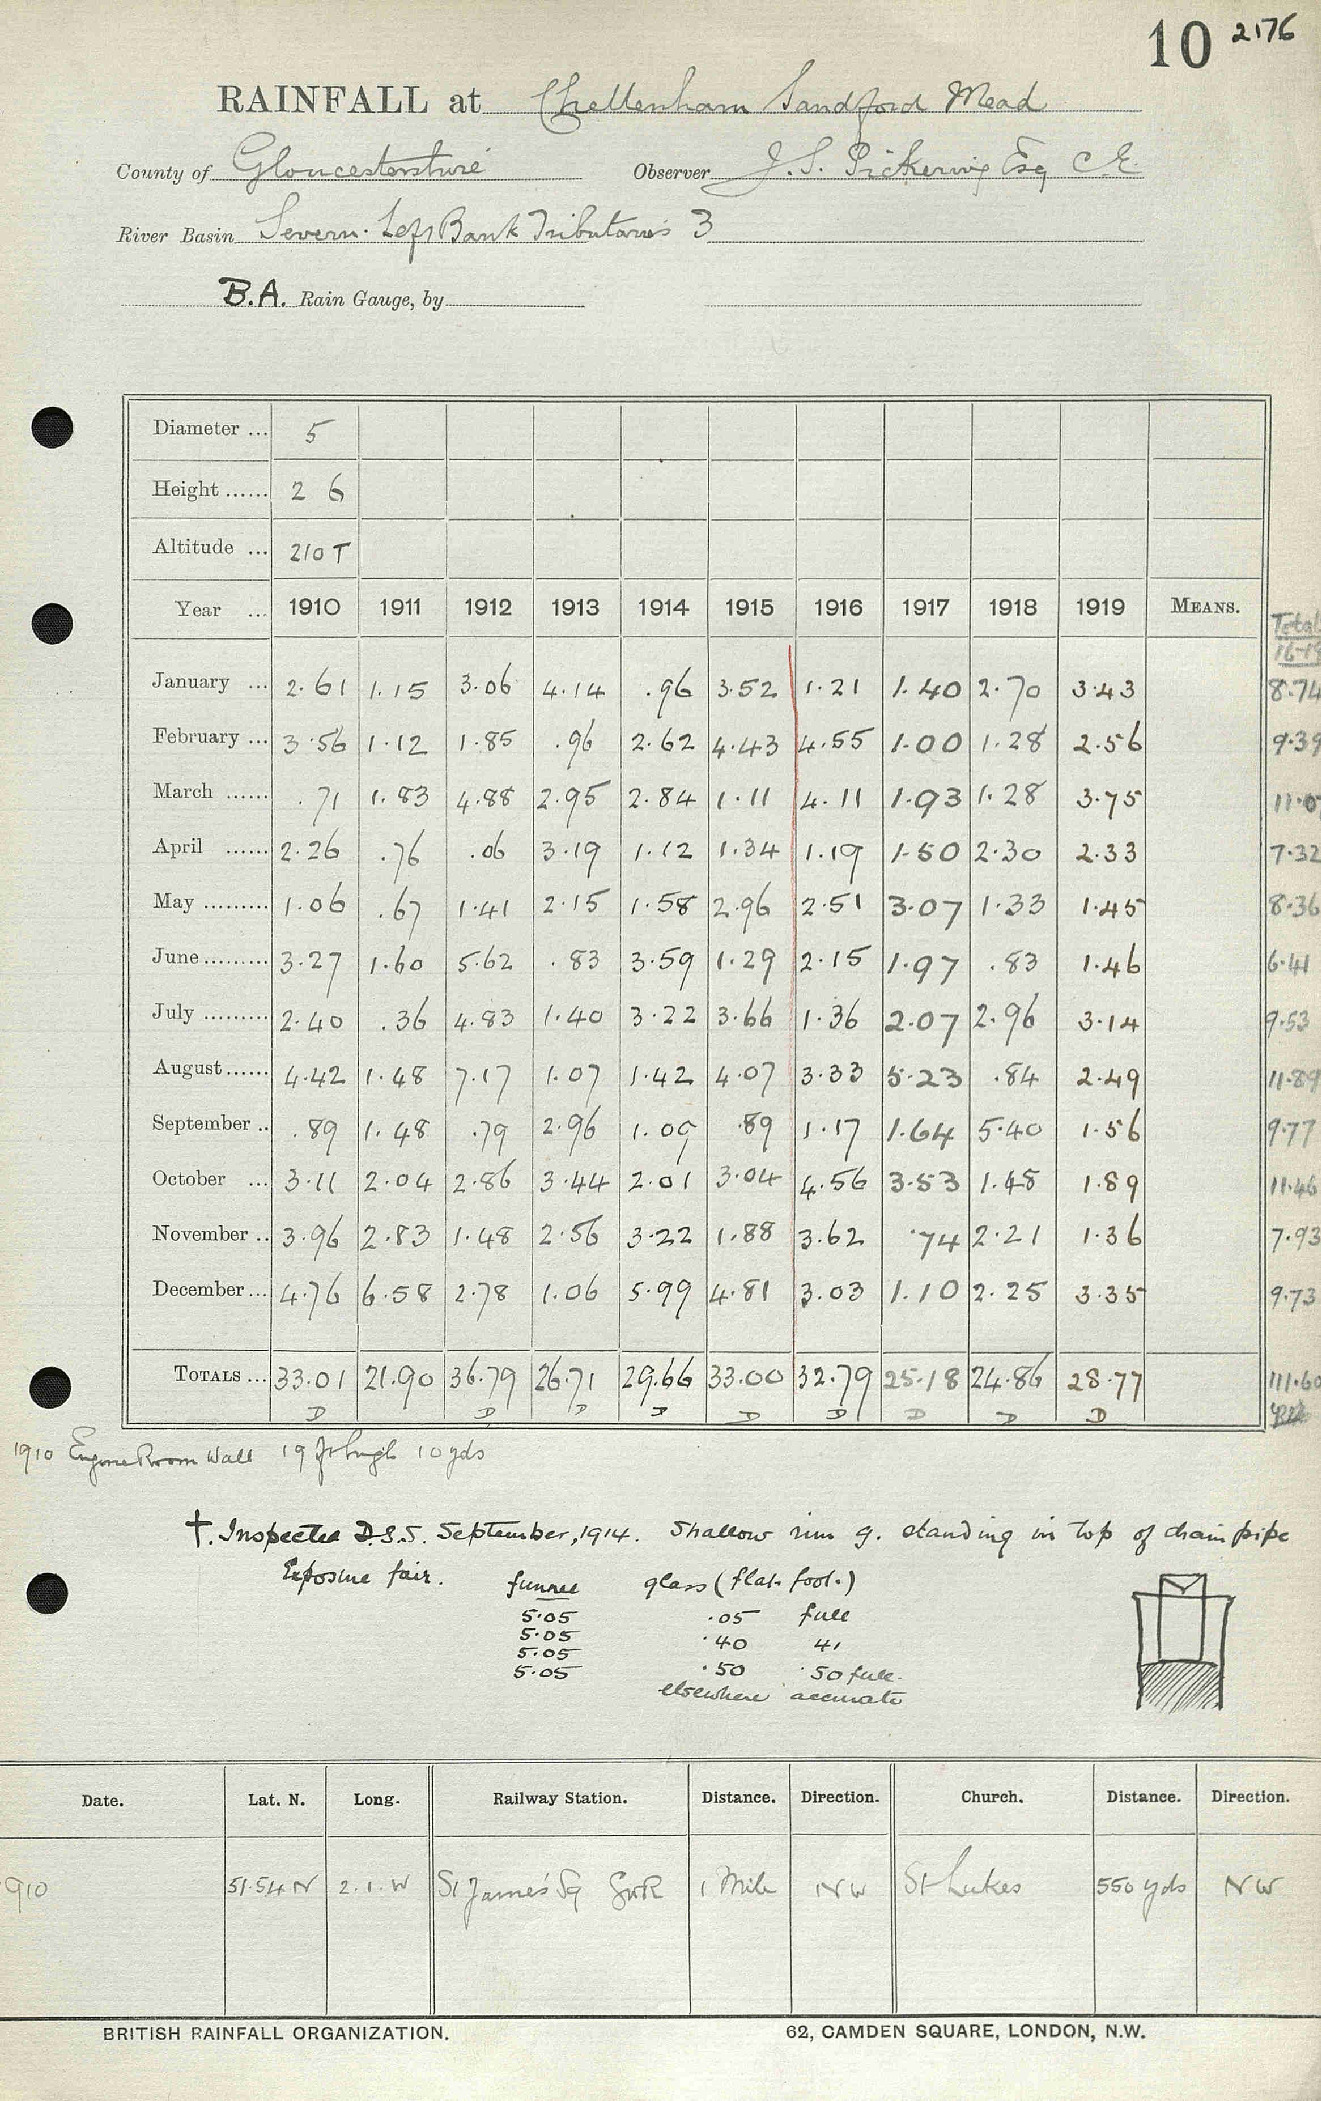 10 2176
RAINFALL at Cheltenham Sandford Mead
County of Gloucestershire Observer J.S. Pickering Esq C.E.
River Basin Severn. Left Bank Tributaries 3
B.A. Rain Gauge, by
Diameter ... 5
Height ...... 2 6
Altitude ... 210 T
Year ... 1910 1911 1912 1913 1914 1915 1916 1917 1918 1919 MEANS. Total 16-19
January ... 2.61 1.15 3.06 4.14 .96 3.52 1.21 1.40 2.70 3.43 8.74
February ... 3.56 1.12 1.85 .96 2.62 4.43 4.55 1.00 1.28 2.56 9.39
March ...... .71 1.83 4.88 2.95 2.84 1.11 4.11 1.93 1.28 3.75 11.07
April ...... 2.26 .76 .06 3.19 1.12 1.34 1.19 1.50 2.30 2.33 7.32
May ......... 1.06 .67 1.41 2.15 1.58 2.96 2.51 3.07 1.33 1.45 8.36
June ......... 3.27 1.60 5.62 .83 3.59 1.29 2.15 1.97 .83 1.46 6.41
July ......... 2.40 .36 4.83 1.40 3.22 3.66 1.36 2.07 2.96 3.14 9.53
August ...... 4.42 1.48 7.17 1.07 1.42 4.07 3.33 5.23 .84 2.49 11.89
September .. .89 1.48 .79 2.96 1.09 .89 1.17 1.64 5.40 1.56 9.77
October ... 3.11 2.04 2.86 3.44 2.01 3.04 4.56 3.53 1.48 1.89 11.46
November .. 3.96 2.83 1.48 2.56 3.22 1.88 3.62 .74 2.21 1.36 7.93
December ... 4.76 6.58 2.78 1.06 5.99 4.81 3.03 1.10 2.25 3.35 9.73
TOTALS ... 33.01 21.90 36.79 26.71 29.66 33.00 32.79 25.18 24.86 28.77 111.60
D D D D D D D D D
1910 Engine Room Wall 19 ft high 10 yds
†. Inspected D.S.S. September, 1914. Shallow rim g. standing in top of drain pipe
Exposure fair. funnel glass (flat foot.)
5.05 .05 full
5.05 .40 41
5.05
5.05 .50 .50 full.
elsewhere accurate
Date. Lat. N. Long. Railway Station. Distance. Direction. Church. Distance. Direction.
1910 51.54 N 2.1.W St James' Sq GWR 1 Mile NW St Lukes 550 yds NW
BRITISH RAINFALL ORGANIZATION. 62, CAMDEN SQUARE, LONDON, N.W.